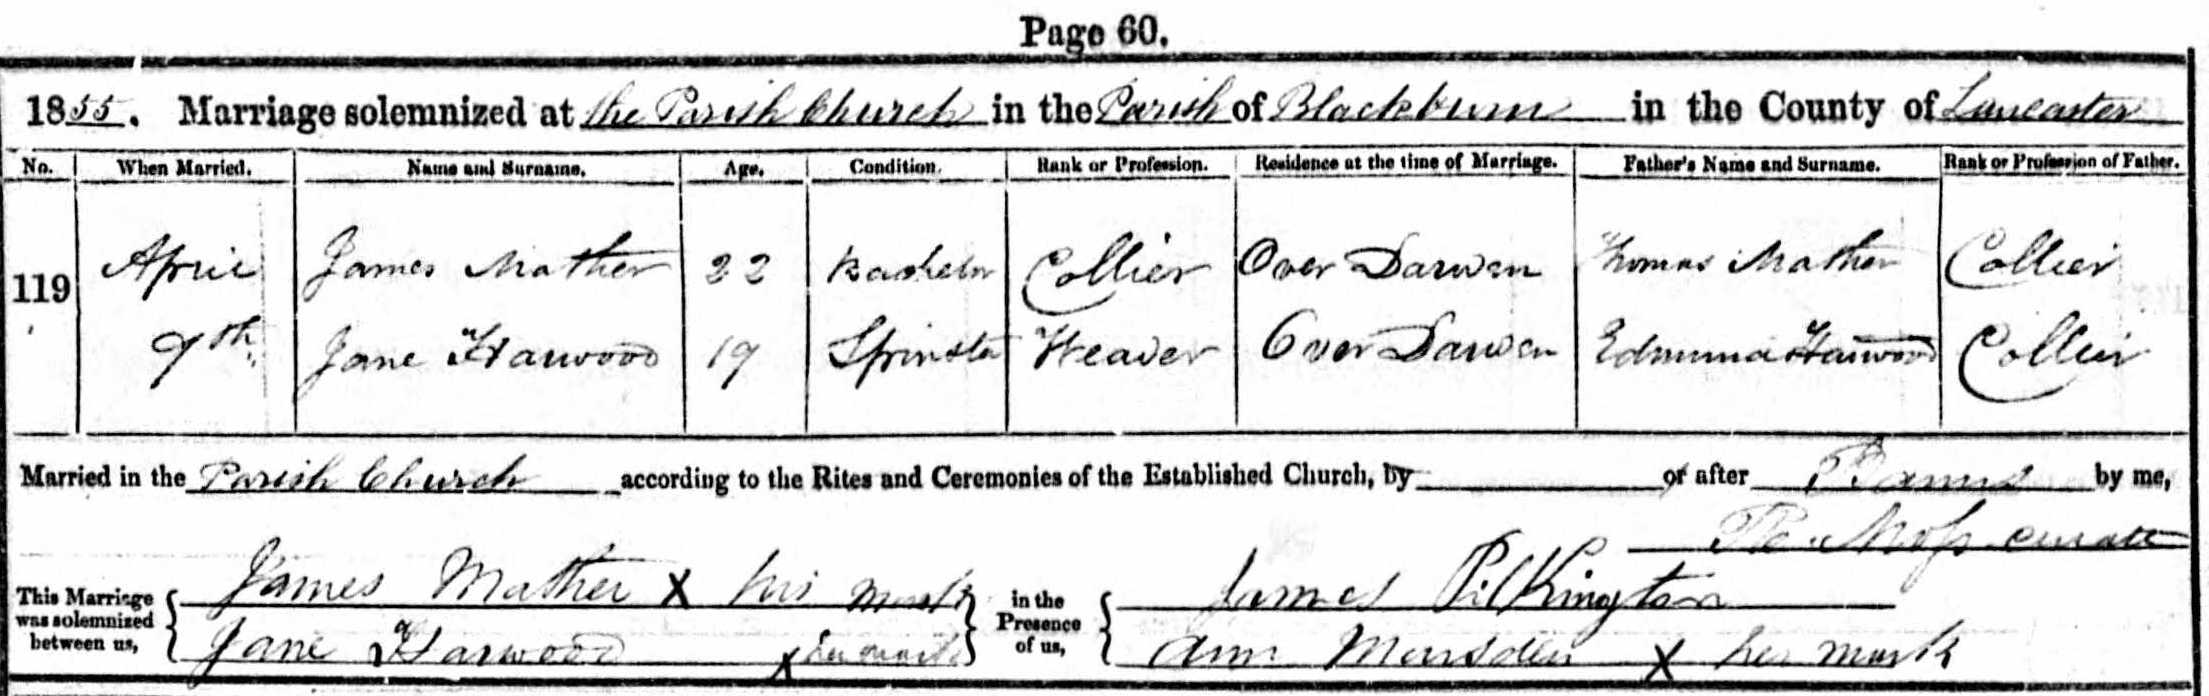 Page 60.
1855. Marriage solemnized at the Parish Church in the Parish of Blackburn in the County of Lancaster
No. When Married. Name and Surname. Age. Condition. Rank or Profession. Residence at the time of Marriage. Father's Name and Surname. Rank or Profession of Father.
119 April James Mather 22 Bachelor Collier Over Darwen Thomas Mather Collier
9th Jane Harwood 19 Spinster Weaver Over Darwen Edmund Harwood Collier
Married in the Parish Church according to the Rites and Ceremonies of the Established Church, by or after Banns by me,
Moss curate
This Marriage was solemnized between us, James Mather X his mark in the Presence of us, James Pilkington
Jane Harwood X her mark Ann Marsden X her mark